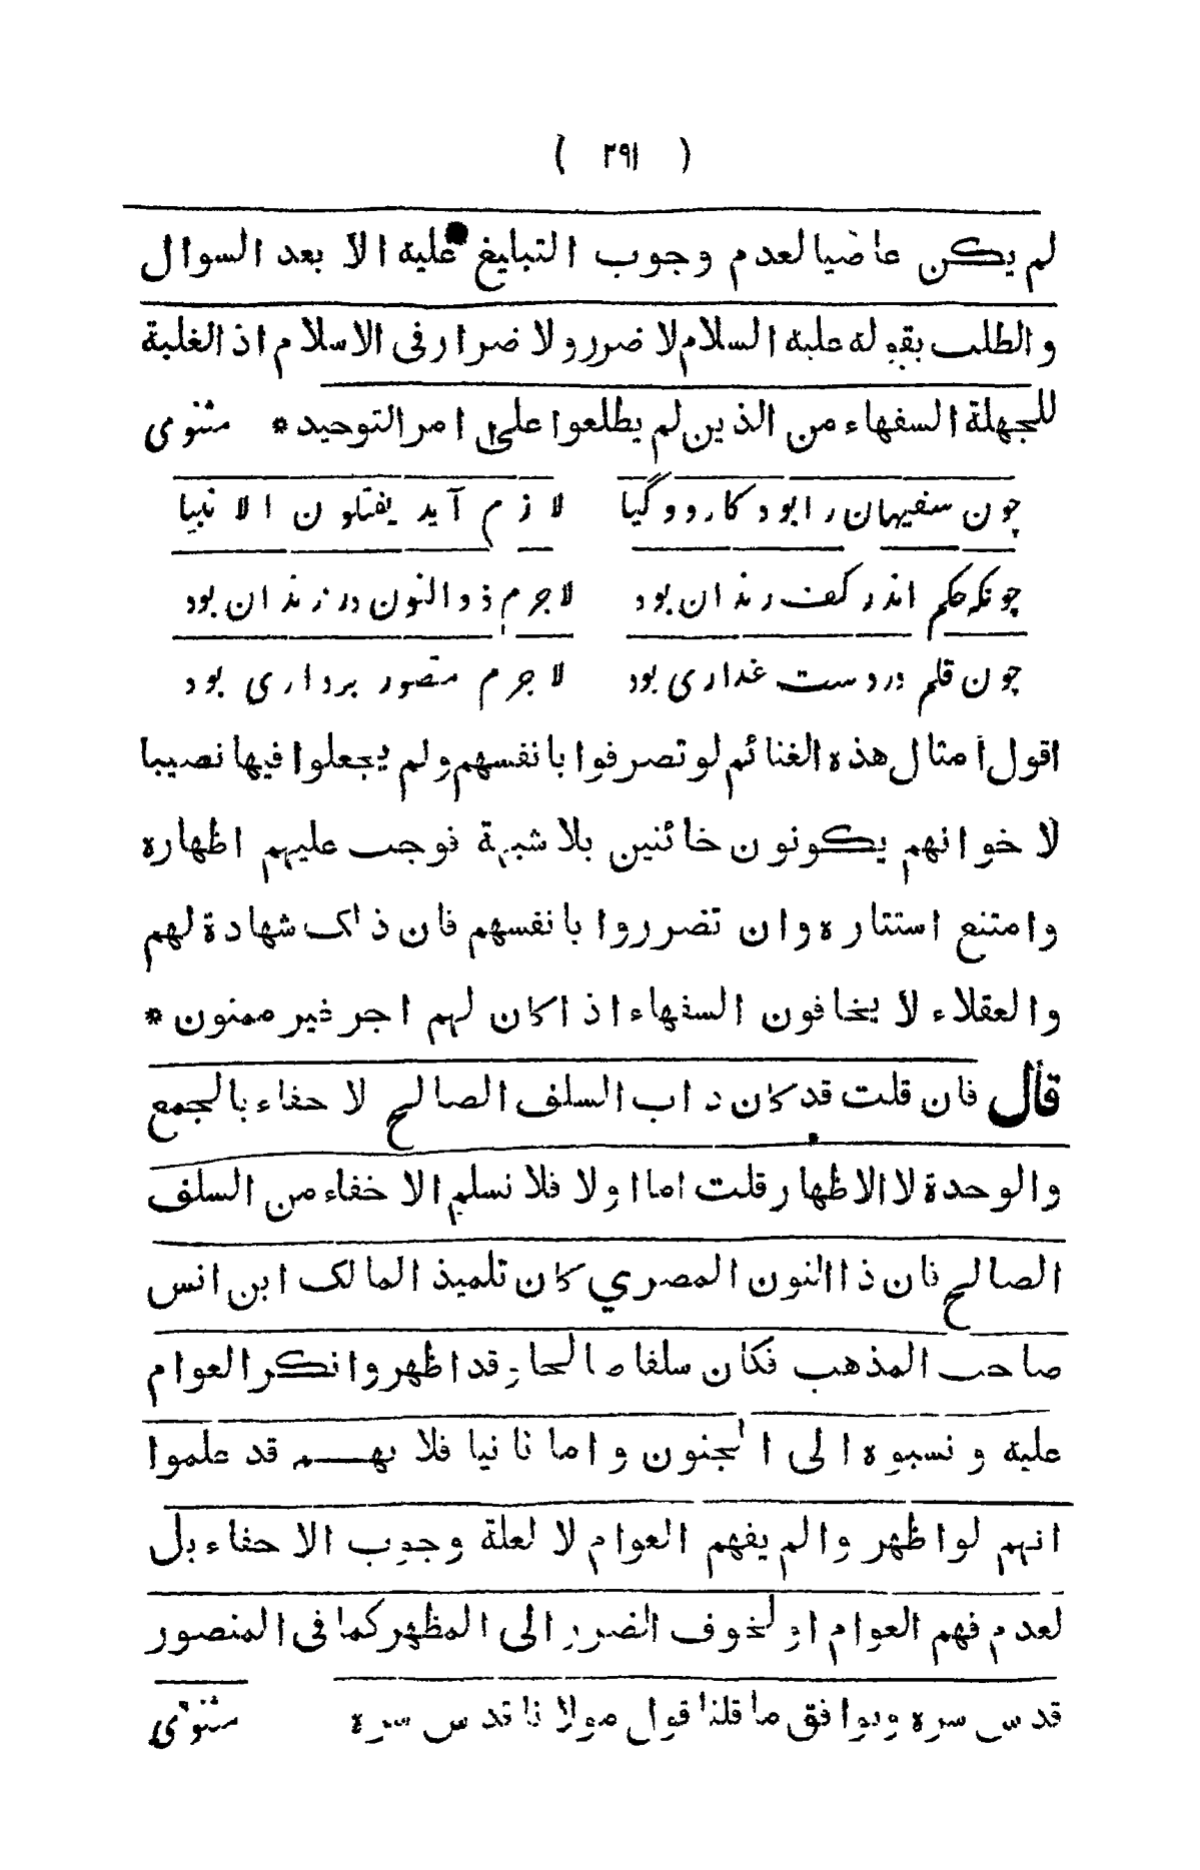 ( ٢٩١ )
لم يكن عاضيا لعدم وجوب التبليغ عليه الا بعد السوال
والطلب بقوله عليه السلام لا ضرر ولا ضرار فى الاسلام اذ الغلبة
للجهلة السفهاء من الذين لم يطلعوا على امر التوحيد * مثنوى
چون سفيهان را بود كار و گيا لازم آيد يقتلون الانبيا
چونكه حكم اندر كف رندان بود لاجرم ذوالنون در زندان بود
چون قلم در دست غدارى بود لا جرم منصور بردارى بود
اقول أمثال هذه الغنائم لو تصرفوا بانفسهم ولم يجعلوا فيها نصيبا
لاخوانهم يكونون خائنين بلا شبهة فوجب عليهم اظهاره
وامتنع استتاره وان تضرروا بانفسهم فان ذلك شهادة لهم
والعقلاء لا يخافون السفهاء اذا كان لهم اجر غير ممنون *
قال فان قلت قد كان داب السلف الصالح لا حفاء بالجمع
والوحدة لا الاظهار قلت اما اولا فلا نسلم الاخفاء من السلف
الصالح فان ذا النون المصري كان تلميذ المالك ابن انس
صاحب المذهب فكان سلفا صالحا و قد اظهر وانكر العوام
عليه و نسبوه الى الجنون واما ثانيا فلا نهم قد علموا
انهم لو اظهر والم يفهم العوام لا لعلة وجوب الاحفاء بل
لعدم فهم العوام او لخوف الضرر الى المظهر كما فى المنصور
قدس سره ويوافق ما قلنا قول مولانا قدس سره مثنوى